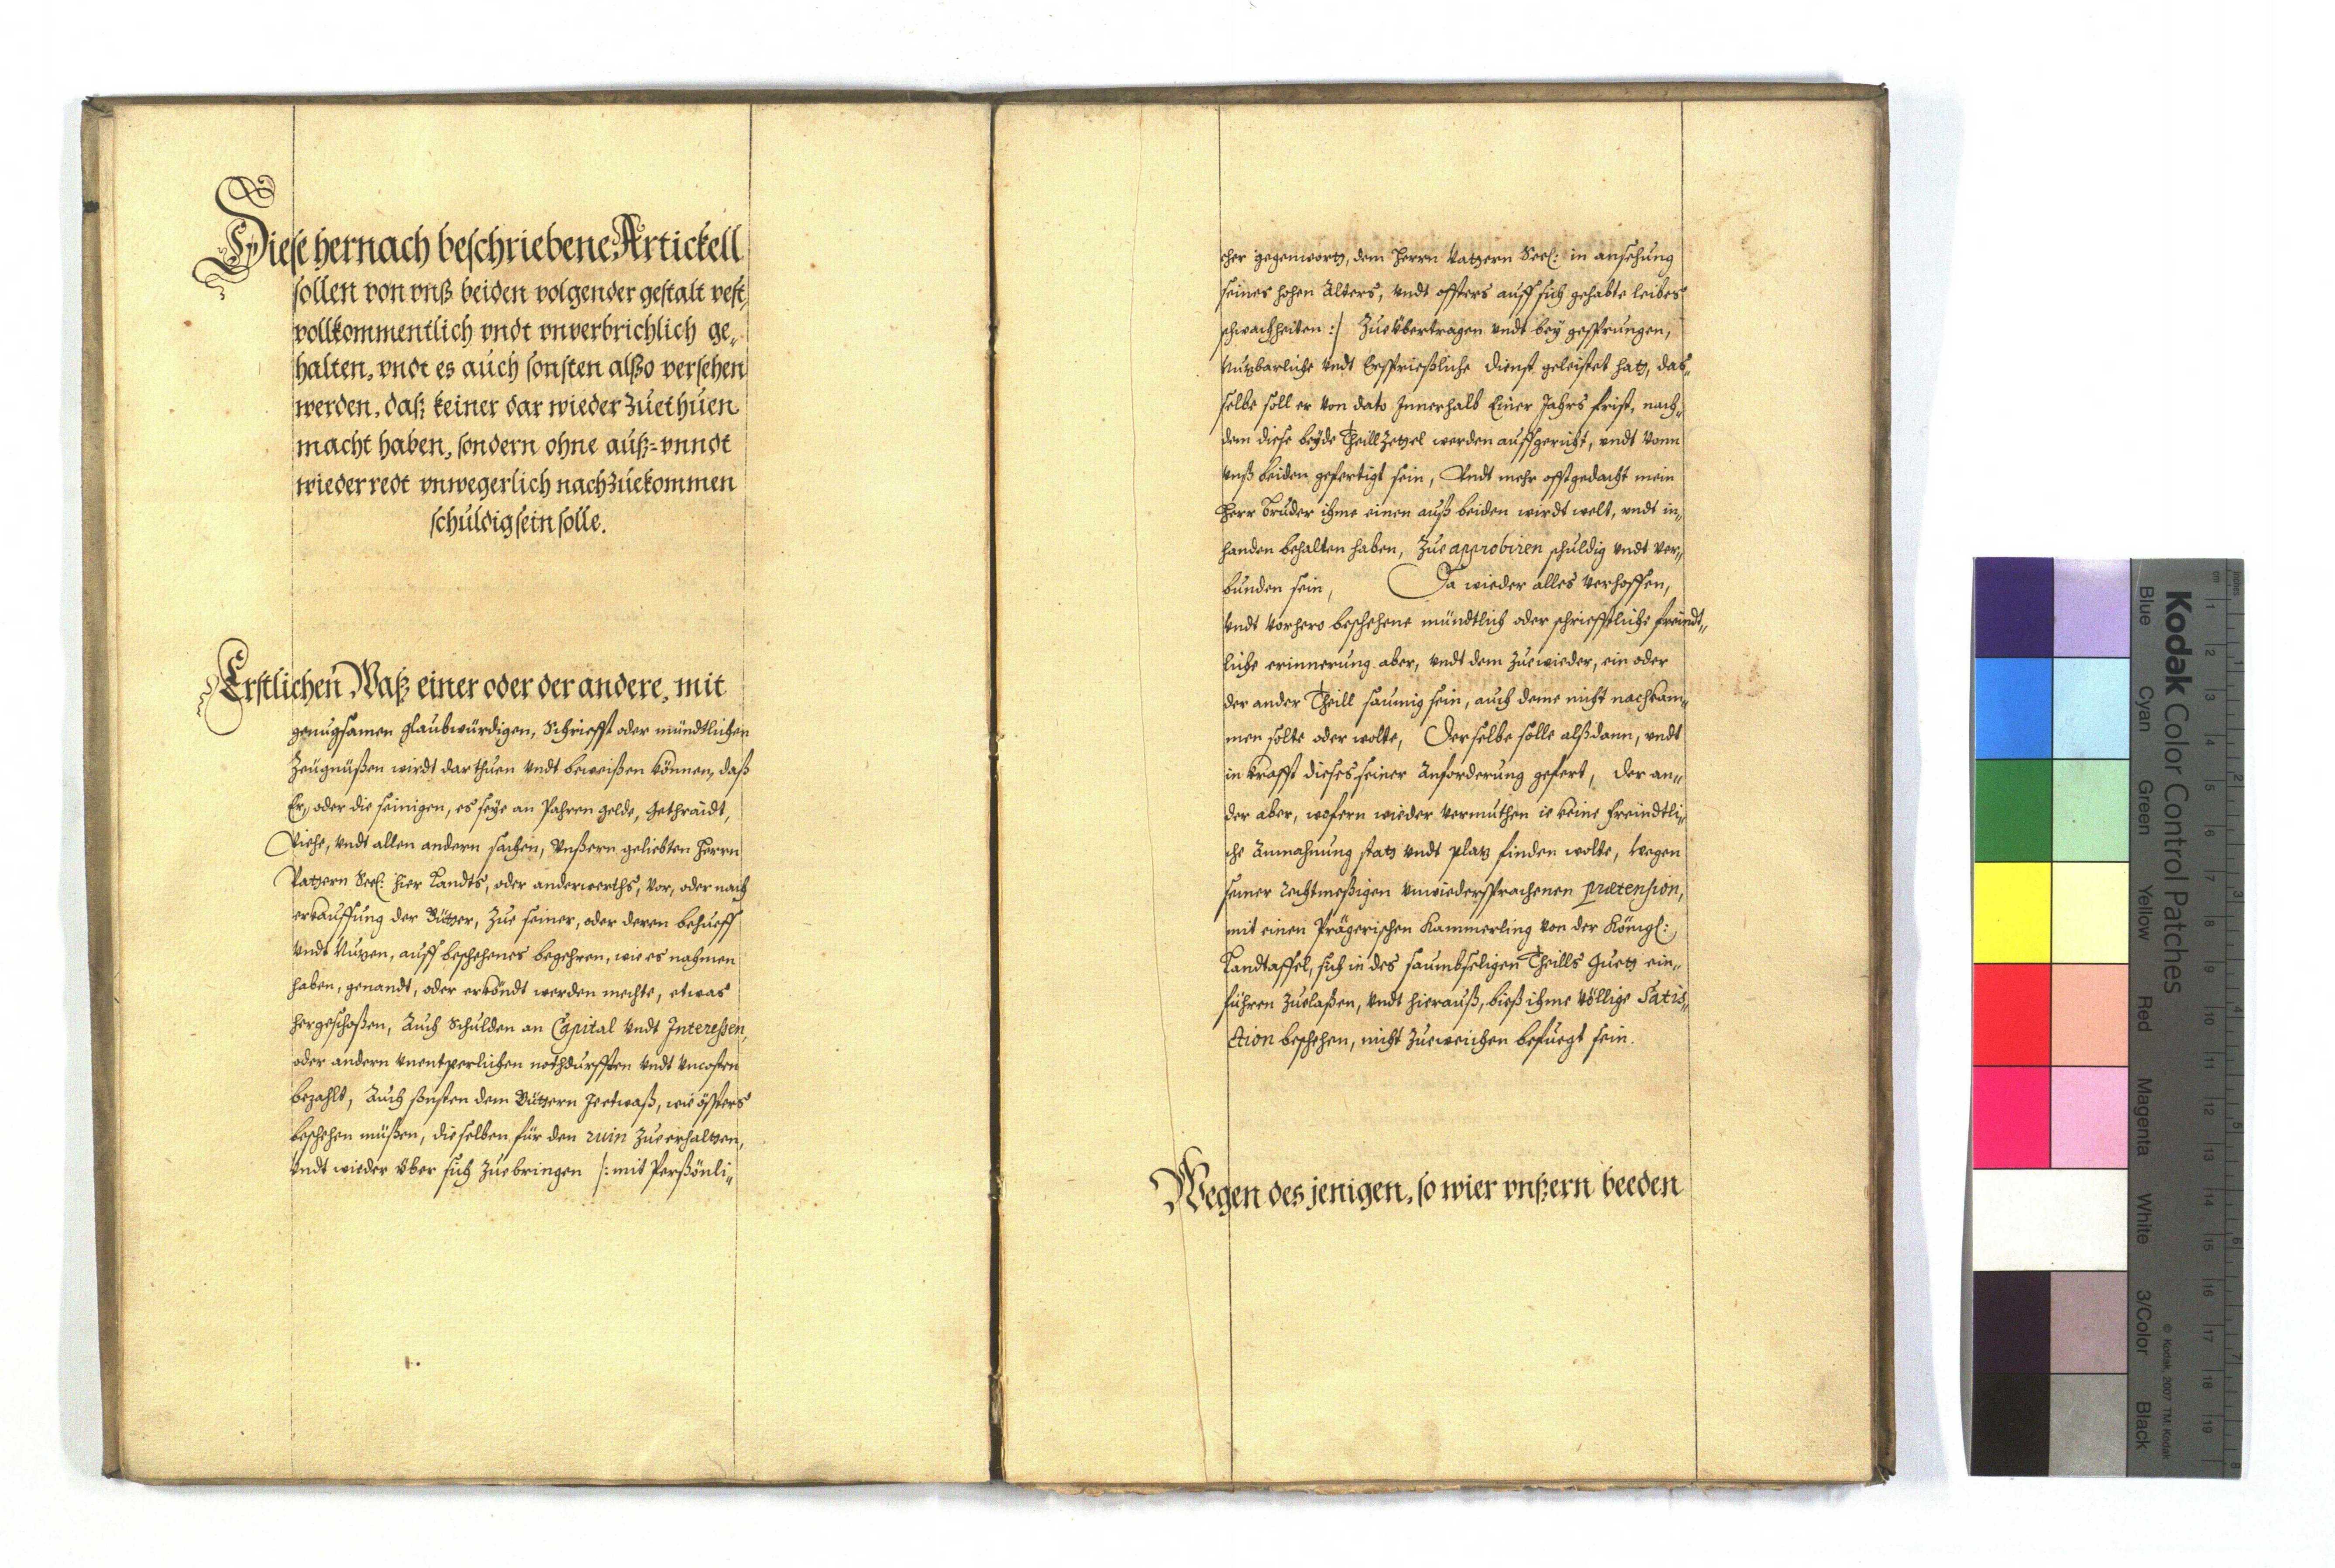 Diese hernach beschriebene Artickell
sollen von vnß beiden volgender gestalt vest
vollkommentlich vndt vnverbrichlich ge„
halten, vndt es auch sonsten alßo versehen
werden, daß keiner dar wieder zuethuen
macht haben, sondern ohne auß=vnndt
wiederredt vnwegerlich nachzuekommen
schuldig sein solle.
Erstlichen Waß einer oder der andere, mit
genugsamen glaubwürdigen, Schriefft oder mündtlichen
Zeugnüßen wirdt darthuen vndt beweißen können, daß
Er, oder die seinigen, es seye an Pahren gelde, Gethraidt,
Viehe, vndt allen andern sachen, vnßern geliebten Herrn
Vattern Seel: hier Landts, oder anderwerths, vor, oder nach
erkauffung der Gütter, Zue seiner, oder deren behueff
vndt Nuzen, auff beschehenes begehren, wie es nahmen
haben, genandt, oder erkändt werden mechte, etwas
hergeschoßen, Auch Schulden an Capital vndt Interessen,
oder andern vnentperlichen nothdurfften vndt vncosten
bezahlt, Auch sonsten dem Güttern Ineetwaß, wie öffters
beschehen müßen, dieselben für den ruin Zueerhalten,
vndt wieder über sich Zuebringen /: mit Perßönli„
cher gegenwortt, dem Herrn Vattern Seel: in ansehung
seines hohen Alters, vndt offters auff sich gehabte leibes
schwachheiten :/ Zueübertragen vndt bey gesprungen,
Nutzbarliche vndt Ersprießliche dienst geleistet hatt, das„
selbe soll er von dato Innerhalb Einer Jahrs frist, nach„
dem diese beyde Theillzettel werden auffgericht, vndt vonn
vnß beiden gefertigt sein, Vndt mehr offtgedacht mein
Herr Bruder ihme einen auß beiden wirdt welt, vndt in„
handen behalten haben, Zue approbiren schuldig vndt ver„
bunden sein, Da wieder alles verhoffen,
vndt vorhero beschehene mündtlich oder schrifftliche freindt„
liche erinnerung aber, vndt dem Zuewieder, ein oder
der ander Theill saumig sein, auch deme nicht nachkam„
men solte oder wolte, Derselbe solle alßdann, vndt
in krafft dieses seiner Anforderung gefert, der an„
der aber, wofern wieder vermuthen ie keine freindtli„
che Anmahnung statt vndt platz finden wolte, wegen
seiner Rechtmeßigen vnwiedersprochenen prætension,
mit einen Prägerischen Kammerling von der Königl:
Landtaffel, sich in des saumbseligen Theills Guett ein„
führen Zuelaßen, vndt hierauß, bieß ihme völlige Satis„
ction beschehen, nicht Zueweichen befuegt sein.
Wegen des jenigen, so wier vnßern beeden
Kodak Color Control Patches
© Kodak, 2007 TM: Kodak
Blue Cyan Green Yellow Red Magenta White 3/Color Black
inches 1 2 3 4 5 6 7 8
cm 1 2 3 4 5 6 7 8 9 10 11 12 13 14 15 16 17 18 19